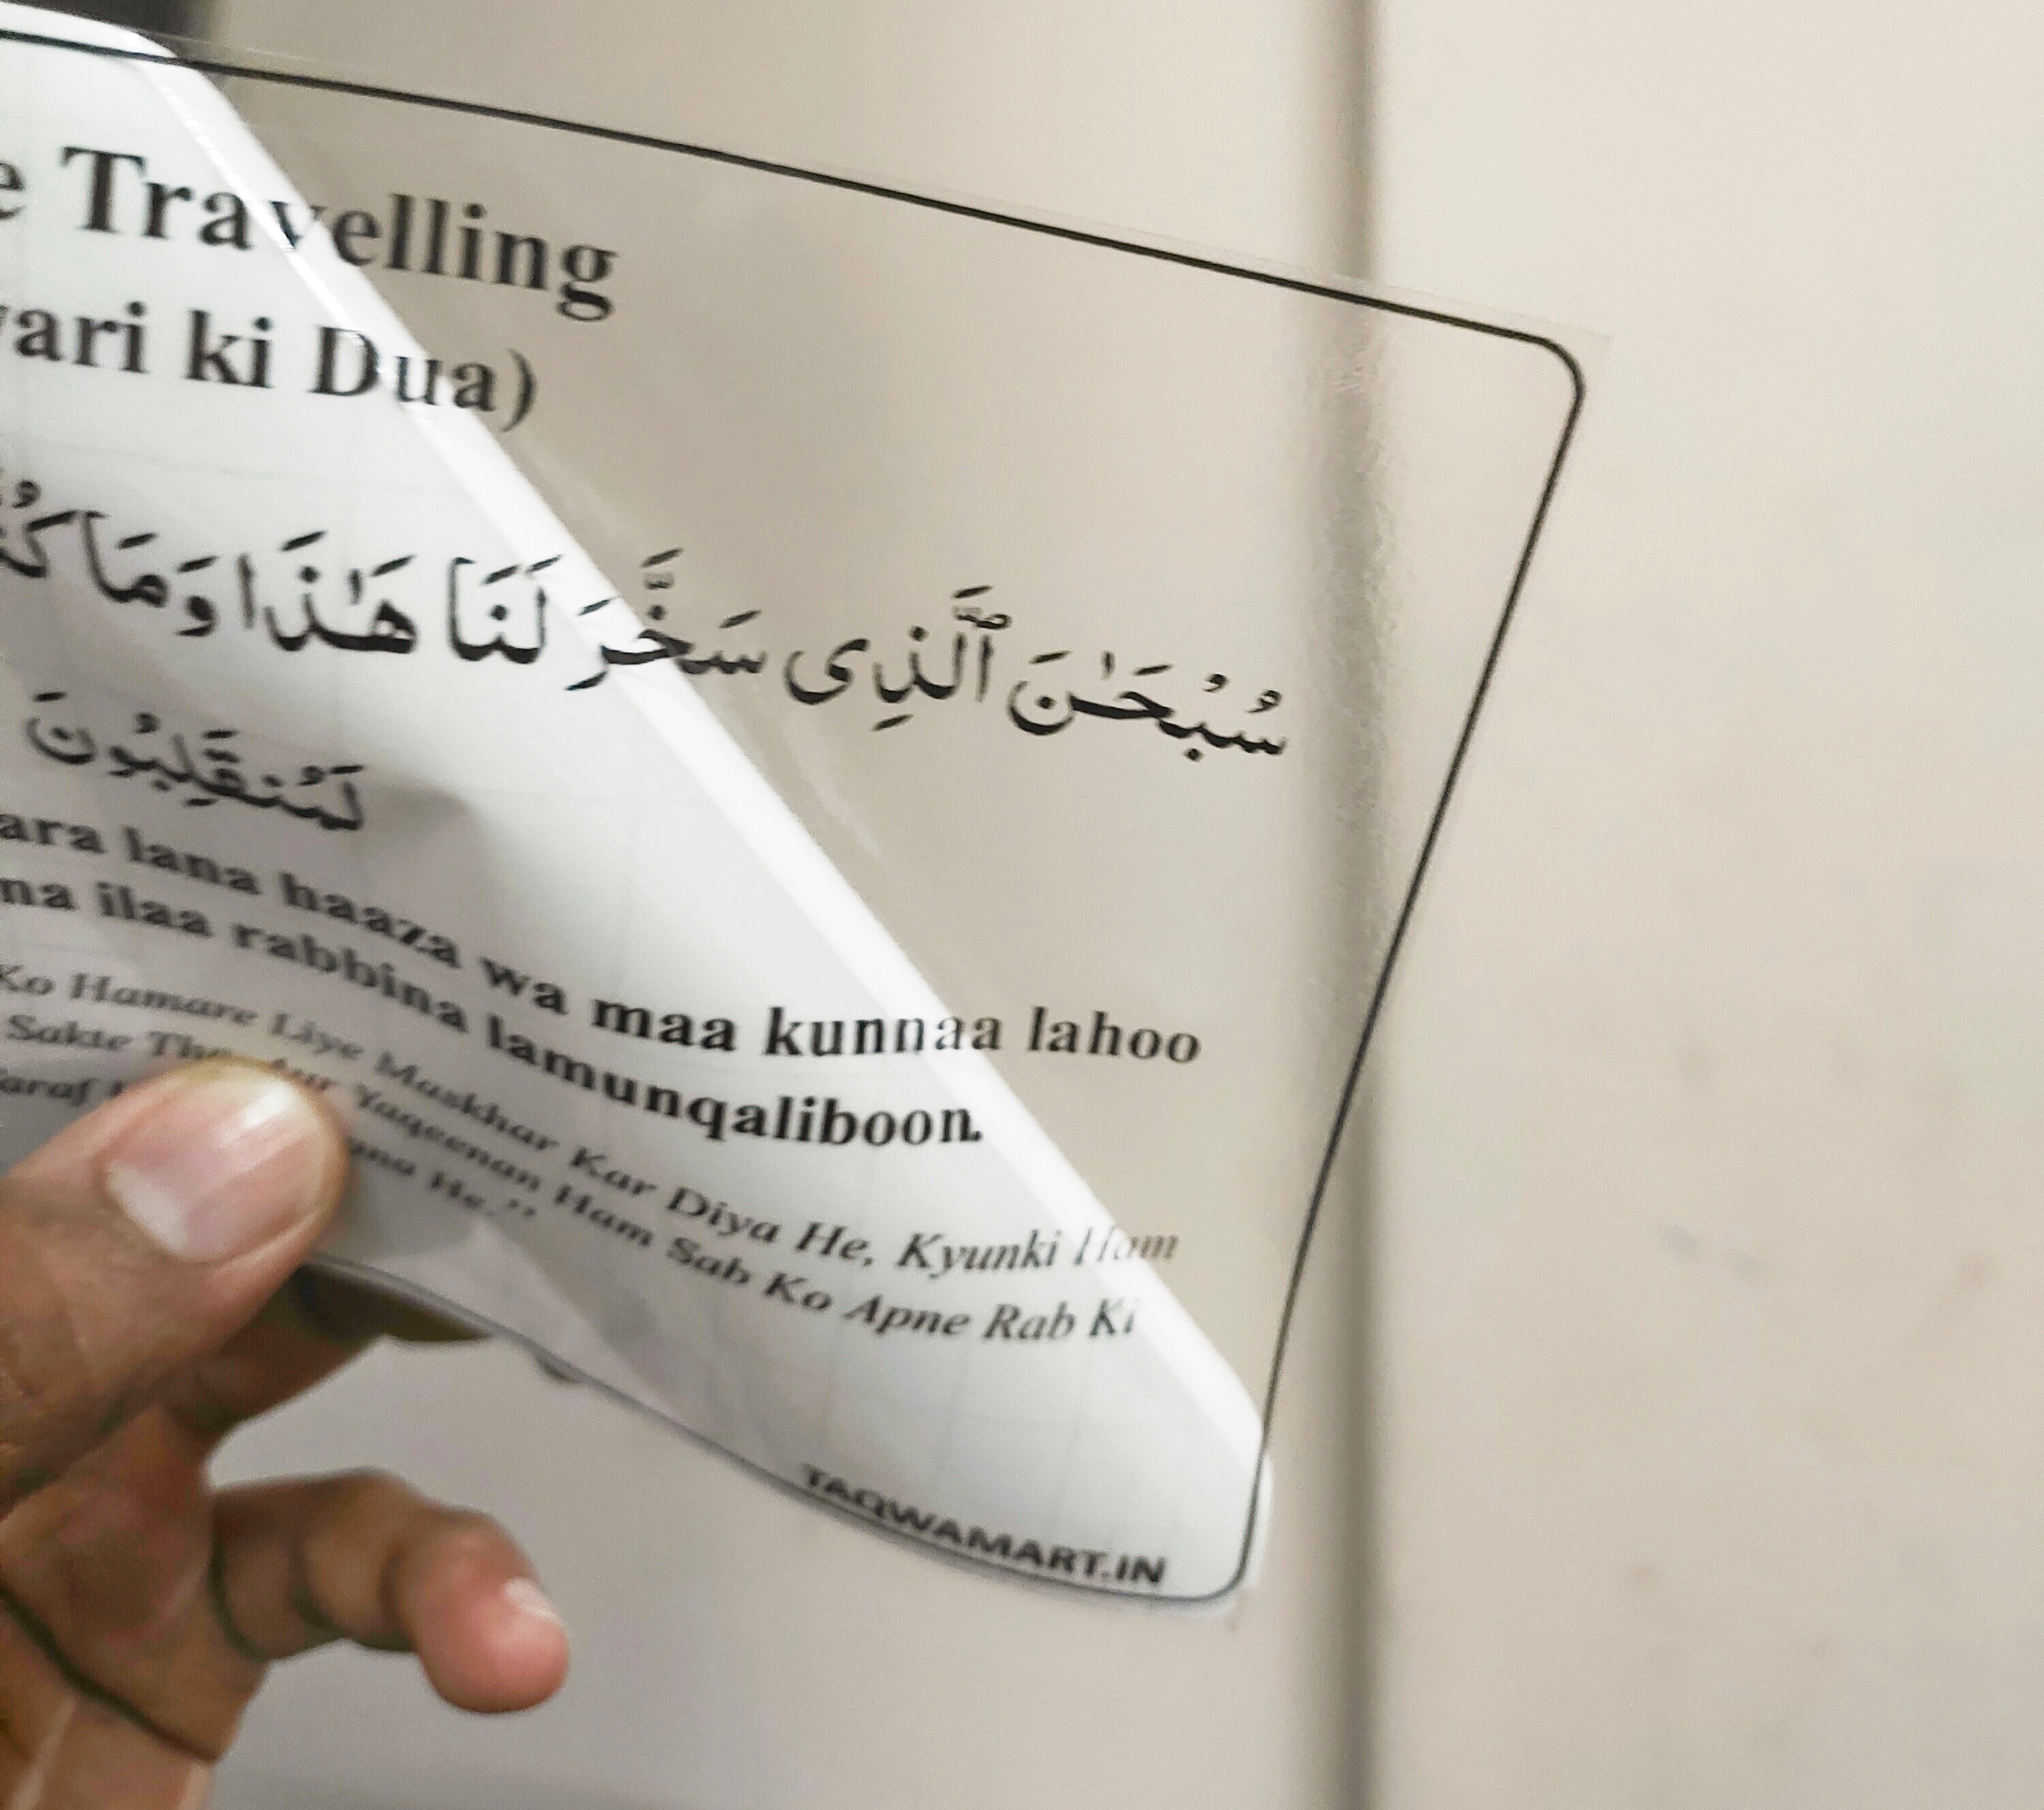 Travelling
ki Dua)
سُبْحَٰنَ ٱلَّذِى سَخَّرَ لَنَا هَٰذَا وَمَا
لَمُنقَلِبُونَ
lana haaza wa maa kunnaa lahoo
ilaa rabbina lamunqaliboon.
Ko Hamare Liye Muskhar Kar Diya He, Kyunki Ham
Sakte The, Aur Yaqeenan Ham Sab Ko Apne Rab Ki
He."
TAQWAMART.IN